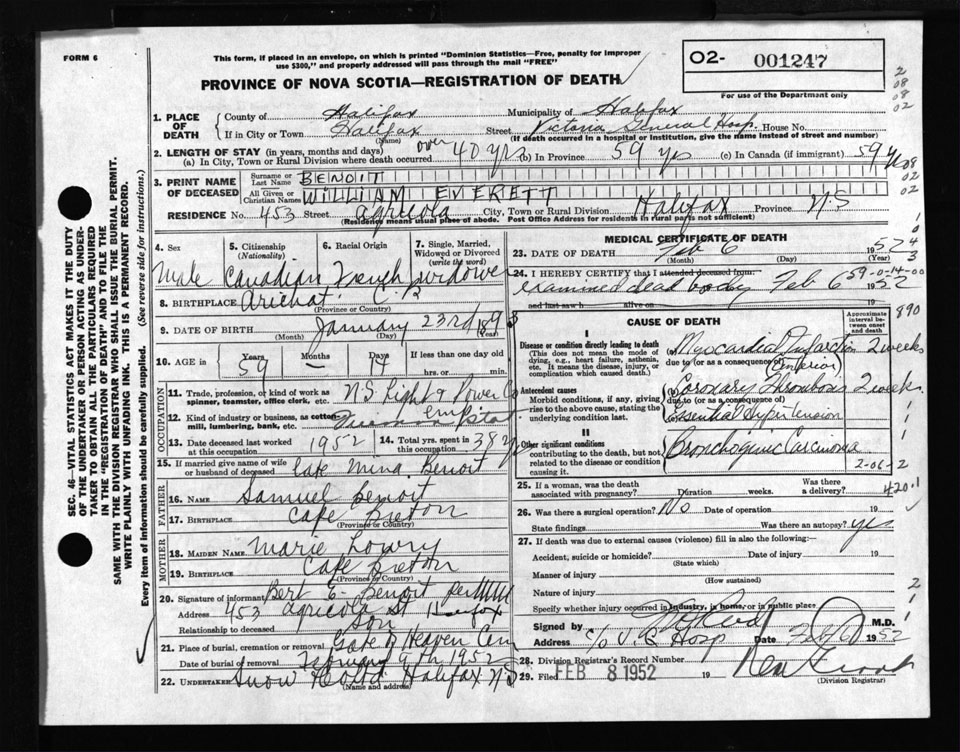 FORM 6
This form, if placed in an envelope, on which is printed "Dominion Statistics—Free, penalty for improper
use $300," and properly addressed will pass through the mail "FREE"
PROVINCE OF NOVA SCOTIA—REGISTRATION OF DEATH
O2- 001247
For use of the Department only
2
08
08
02
1. PLACE OF DEATH
County of Halifax Municipality of Halifax
If in City or Town Halifax Street Victoria General Hosp. House No.
(Name) (If death occurred in a hospital or institution, give the name instead of street and number)
2. LENGTH OF STAY (in years, months and days)
(a) In City, Town or Rural Division where death occurred over 40 yrs (b) In Province 59 yrs (c) In Canada (if immigrant) 59 yrs
3. PRINT NAME OF DECEASED
Surname or Last Name BENOIT
All Given or Christian Names WILLIAM EVERETT
RESIDENCE No. 453 Street Agricola City, Town or Rural Division Halifax Province N.S
(Residency means usual place of abode. Post Office Address for residents in rural parts not sufficient)
SEC. 46—VITAL STATISTICS ACT MAKES IT THE DUTY
OF THE UNDERTAKER OR PERSON ACTING AS UNDER-
TAKER TO OBTAIN ALL THE PARTICULARS REQUIRED
IN THE "REGISTRATION OF DEATH" AND TO FILE THE
SAME WITH THE DIVISION REGISTRAR WHO SHALL ISSUE THE BURIAL PERMIT.
WRITE PLAINLY WITH UNFADING INK. THIS IS A PERMANENT RECORD.
Every item of information should be carefully supplied. (See reverse side for instructions.)
4. Sex 5. Citizenship (Nationality) 6. Racial Origin 7. Single, Married, Widowed or Divorced (write the word)
Male Canadian French widower
8. BIRTHPLACE Arichat C.B
(Province or Country)
9. DATE OF BIRTH January 23rd 1893
(Month) (Day) (Year)
10. AGE in Years 59 Months — Days 14 If less than one day old hrs. or min.
OCCUPATION
11. Trade, profession, or kind of work as spinner, teamster, office clerk, etc. N.S Light & Power Co
12. Kind of industry or business, as cotton-mill, lumbering, bank, etc.
13. Date deceased last worked at this occupation 1952 14. Total yrs. spent in this occupation 38 yrs
15. If married give name of wife or husband of deceased late Mina Benoit
FATHER
16. NAME Samuel Benoit
17. BIRTHPLACE Cape Breton
(Province or Country)
MOTHER
18. MAIDEN NAME Marie Lowry
19. BIRTHPLACE Cape Breton
(Province or Country)
20. Signature of informant Bert E. Benoit per
Address 453 Agricola St Halifax
Relationship to deceased Son
21. Place of burial, cremation or removal Gate of Heaven Cem
Date of burial or removal February 9th 1952
22. UNDERTAKER Snow Halifax N.S
(Name and address)
MEDICAL CERTIFICATE OF DEATH
23. DATE OF DEATH Feb 6 1952
(Month) (Day) (Year)
24. I HEREBY CERTIFY that I attended deceased from: 59-0-14-00
examined dead body Feb 6 1952
and last saw h alive on 19
CAUSE OF DEATH
Approximate interval between onset and death
890
I
Disease or condition directly leading to death
(This does not mean the mode of dying, e.g., heart failure, asthenia, etc. It means the disease, injury, or complication which caused death.)
(a) Myocardial Infarction 2 weeks
due to (or as a consequence of) (anterior)
Antecedent causes
Morbid conditions, if any, giving rise to the above cause, stating the underlying condition last.
(b) Coronary Thrombosis 2 weeks
due to (or as a consequence of)
Essential Hypertension
II
Other significant conditions
contributing to the death, but not related to the disease or condition causing it
Bronchogenic Carcinoma
2-06-2
25. If a woman, was the death associated with pregnancy? Duration weeks. Was there a delivery?
420.1
26. Was there a surgical operation? No Date of operation 19
State findings Was there an autopsy? yes
27. If death was due to external causes (violence) fill in also the following:—
Accident, suicide or homicide? Date of injury 19
(State which)
Manner of injury
(How sustained)
Nature of injury
Specify whether injury occurred in industry, in home, or in public place
Signed by M.D.
Address c/o V. G. Hosp Date Feb 6 1952
28. Division Registrar's Record Number
29. Filed FEB 8 1952 19
(Division Registrar)